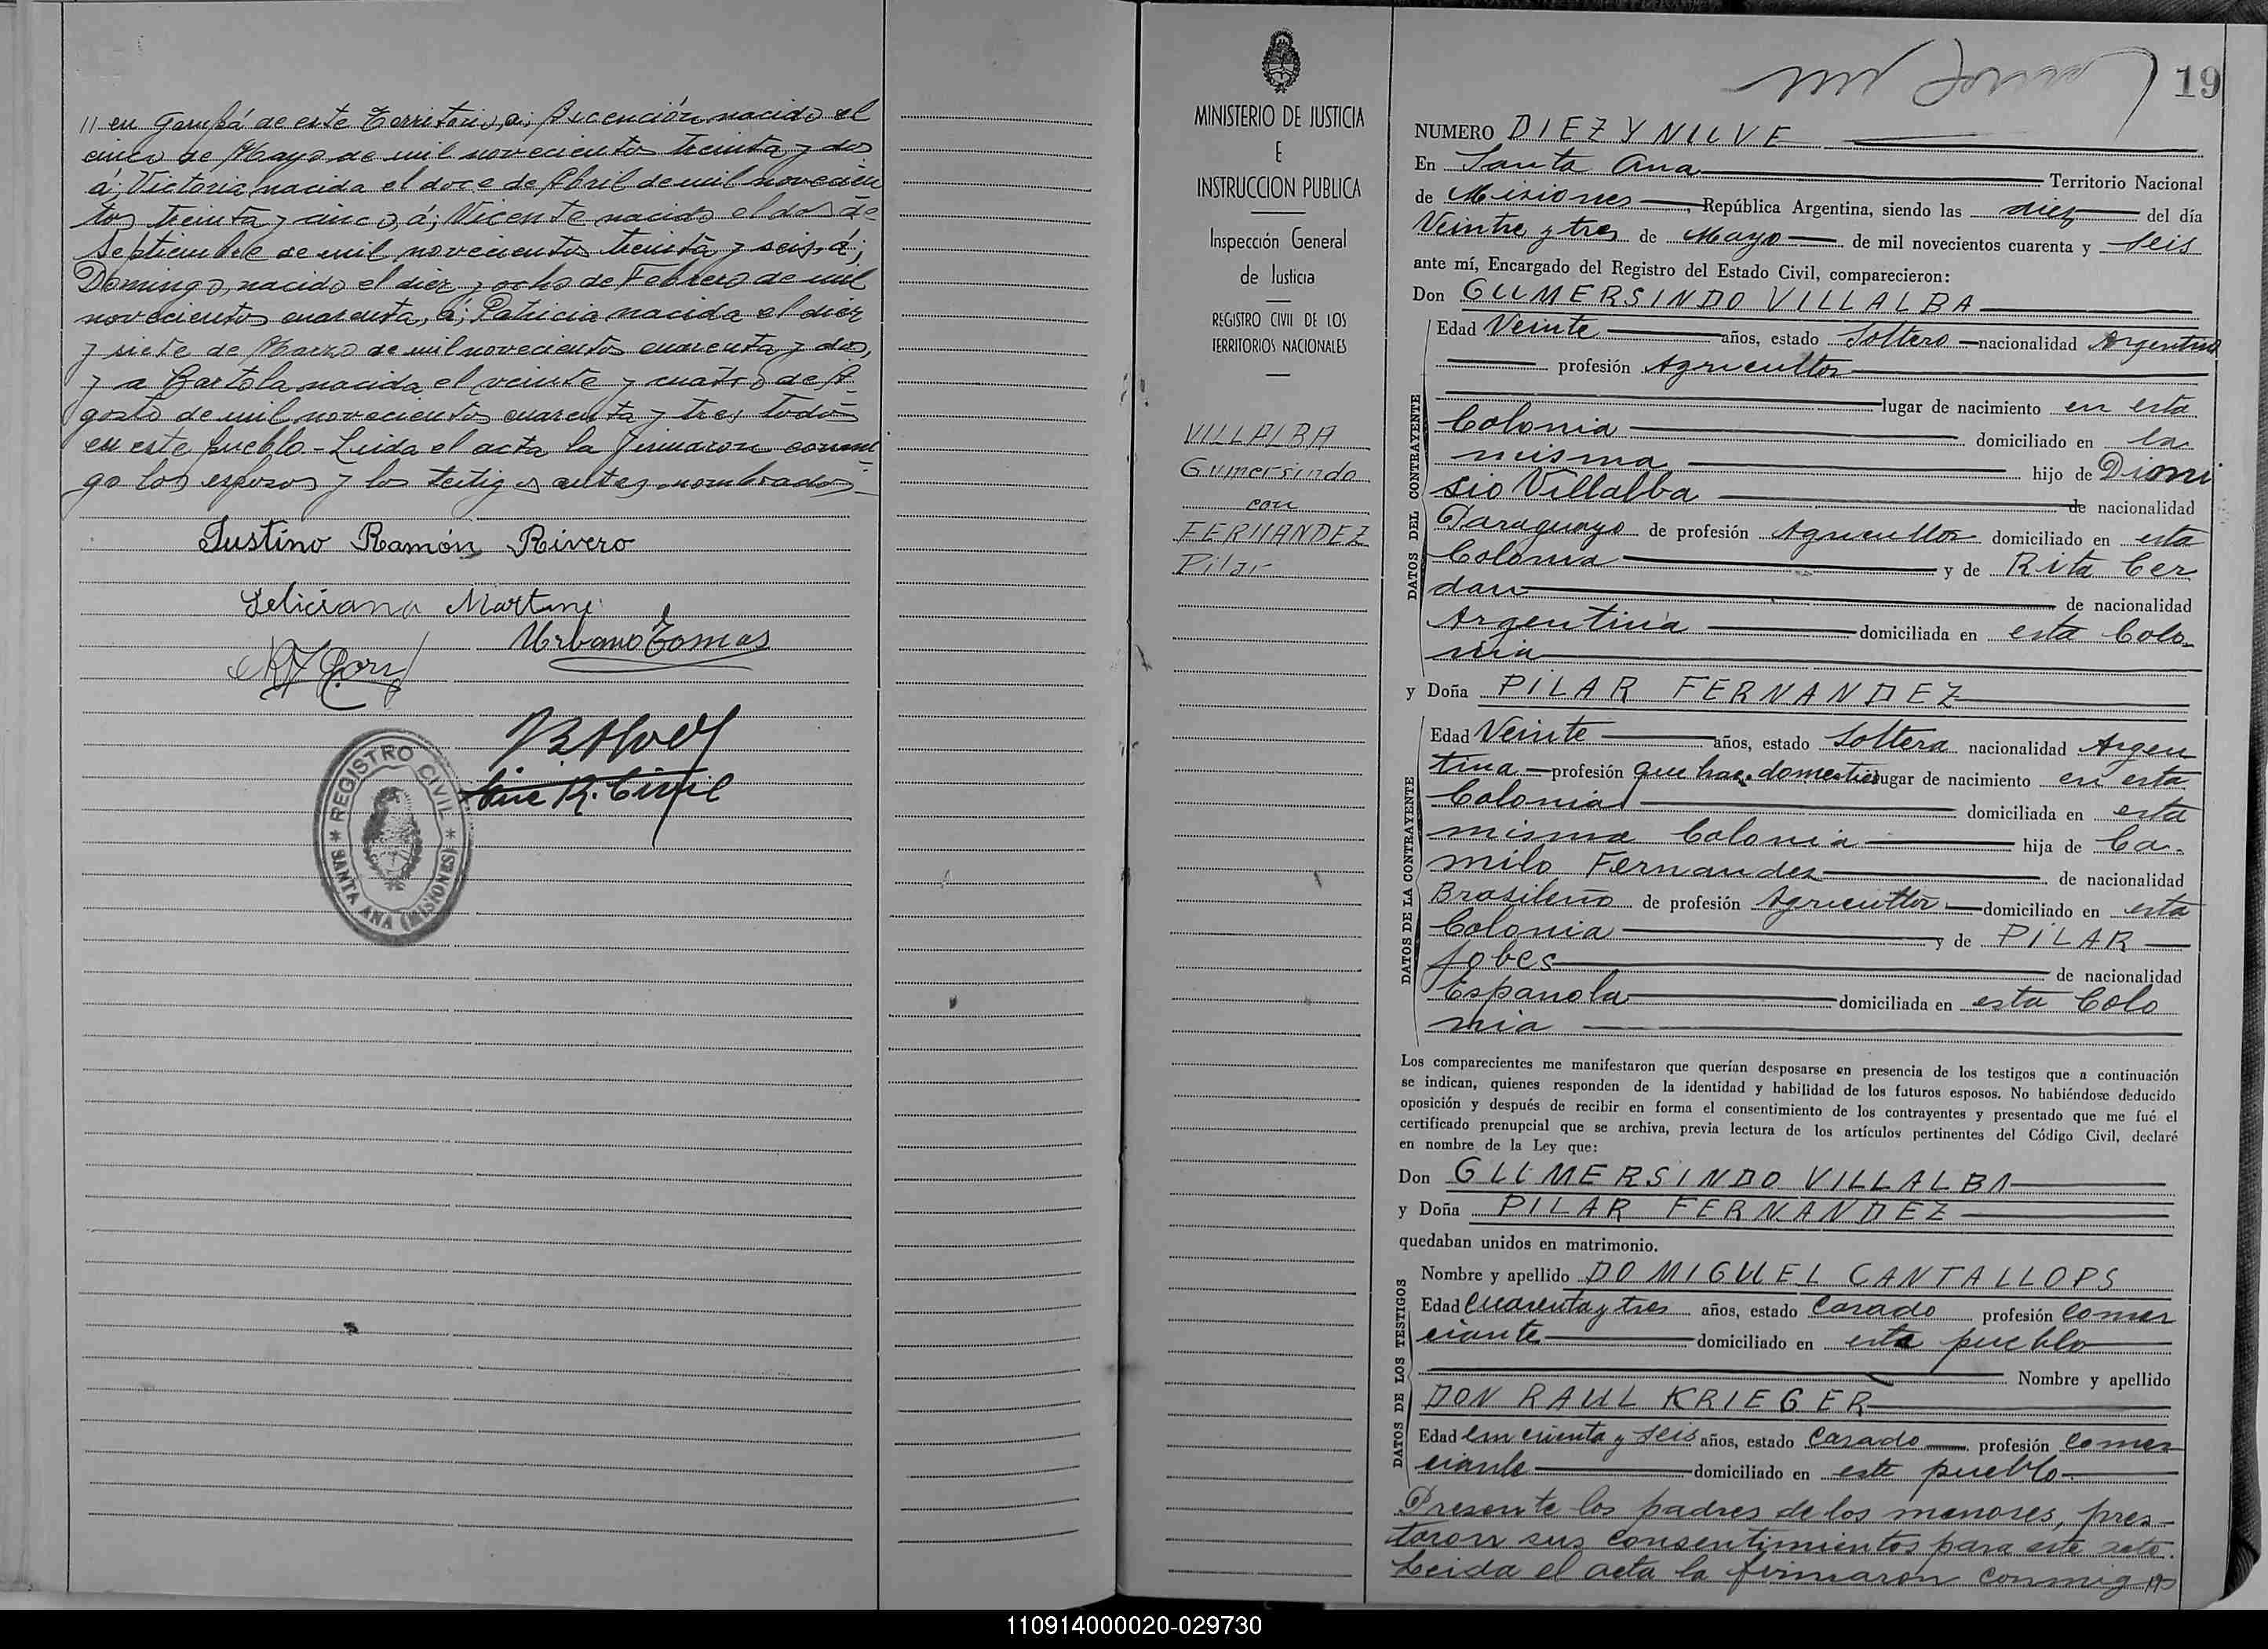 // en Garupá de este Territorio, a; Ascención nacido el
cinco de Mayo de mil novecientos treinta y dos
á; Victoria nacida el doce de Abril de mil novecien
tos treinta y cinco, á; Vicente nacido el dos de
Septiembre de mil novecientos treinta y seis, á;
Domingo, nacido el diez y ocho de Febrero de mil
novecientos cuarenta, á; Patricia nacida el diez
y siete de Marzo de mil novecientos cuarenta y dos,
y a Bartola nacida el veinte y cuatro de A-
gosto de mil novecientos cuarenta y tres todos
en este pueblo.- Leida el acta la firmaron conmi
go los esposos y los testigos antes nombrados-
Justino Ramón Rivero
Feliciana Martine
Urbano Tomas
R. Civil
REGISTRO CIVIL
SANTA ANA (MISIONES)
MINISTERIO DE JUSTICIA
E
INSTRUCCION PUBLICA
Inspección General
de Justicia
REGISTRO CIVIL DE LOS
TERRITORIOS NACIONALES
VILLALBA
Gumersindo
con
FERNANDEZ
Pilar
19
NUMERO DIEZ Y NUEVE
En Santa Ana Territorio Nacional
de Misiones, República Argentina, siendo las diez del día
Veintre y tres de Mayo de mil novecientos cuarenta y seis
ante mí, Encargado del Registro del Estado Civil, comparecieron:
Don GUMERSINDO VILLALBA
DATOS DEL CONTRAYENTE
Edad Veinte años, estado Soltero nacionalidad Argentino
profesión Agricultor
lugar de nacimiento en esta
Colonia domiciliado en la
misma hijo de Dioni
sio Villalba de nacionalidad
Paraguayo de profesión Agricultor domiciliado en esta
Colonia y de Rita Cer
dan de nacionalidad
Argentina domiciliada en esta Colo
nia
y Doña PILAR FERNANDEZ
DATOS DE LA CONTRAYENTE
Edad Veinte años, estado Soltera nacionalidad Argen
tina profesión que hac. domestico lugar de nacimiento en esta
Colonia domiciliada en esta
misma Colonia hija de Ca-
milo Fernandez de nacionalidad
Brasileño de profesión Agricultor domiciliado en esta
Colonia y de PILAR
Jobes de nacionalidad
Espanola domiciliada en esta Colo
nia
Los comparecientes me manifestaron que querían desposarse en presencia de los testigos que a continuación
se indican, quienes responden de la identidad y habilidad de los futuros esposos. No habiéndose deducido
oposición y después de recibir en forma el consentimiento de los contrayentes y presentado que me fué el
certificado prenupcial que se archiva, previa lectura de los artículos pertinentes del Código Civil, declaré
en nombre de la Ley que:
Don GUMERSINDO VILLALBA
y Doña PILAR FERNANDEZ
quedaban unidos en matrimonio.
DATOS DE LOS TESTIGOS
Nombre y apellido DO MIGUEL CANTALLOPS
Edad Cuarenta y tres años, estado Casado profesión Comer
ciante domiciliado en este pueblo
Nombre y apellido
DON RAUL KRIEGER
Edad cincuenta y seis años, estado Casado profesión comer
ciante domiciliado en este pueblo
Presente los padres de los menores, pres-
taron sus consentimientos para este acto.
Leida el acta la firmaron conmigo
110914000020-029730